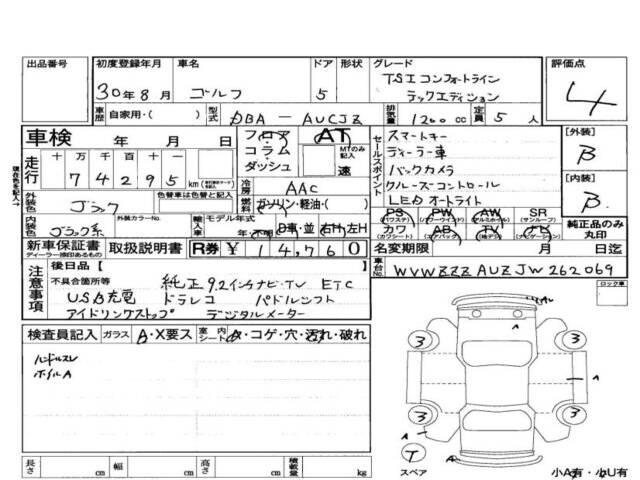 出品番号 初度登録年月 車名 ドア 形状 グレード 評価点
30年8月 ゴルフ 5 TSIコンフォートライン
テックエディション
4
車歴 自家用・( ) 型式 DBA-AUCJZ 排気量 1200cc 定員 5人
車検 年 月 日 フロア AT
コラム MTのみ記入
ダッシュ 速
走行 十 万 千 百 十 一
74295 km
冷房 AAC
燃料 ガソリン・軽油・( )
外装色 ブラック 色替車は色替と記入
内装色 ブラック系 外装カラーNo. 輸入車 モデル年式 年・不明 D車・並 右H・左H
新車保証書 取扱説明書 R券 ¥14,760
ディーラー捺印あるもの
セールスポイント
スマートキー
ディーラー車
バックカメラ
クルーズコントロール
LEDオートライト
[外装] B
[内装] B
PS PW AW SR
(パワステ) (パワーウインド) (アルミホイル) (サンルーフ)
カワ AB TV ナビ
(カワシート) (エアバッグ) (ナビゲーション)
純正品のみ丸印
名変期限 月 日迄
車台No. WVWZZZAUZJW262069
注意事項
後日品【 】
不具合箇所等 純正9.2インチナビ・TV ETC
USB充電 ドラレコ パドルシフト
アイドリングストップ デジタルメーター
ロック車
検査員記入 ガラス A・X要ス 室内シート A・コゲ・穴・汚れ・破れ
ハンドルスレ
ホイルA
3 3
3 3
A A A A
T
スペア
小A有・小U有
長さ cm 幅 cm 高さ cm 積載量 kg
現在色を記入